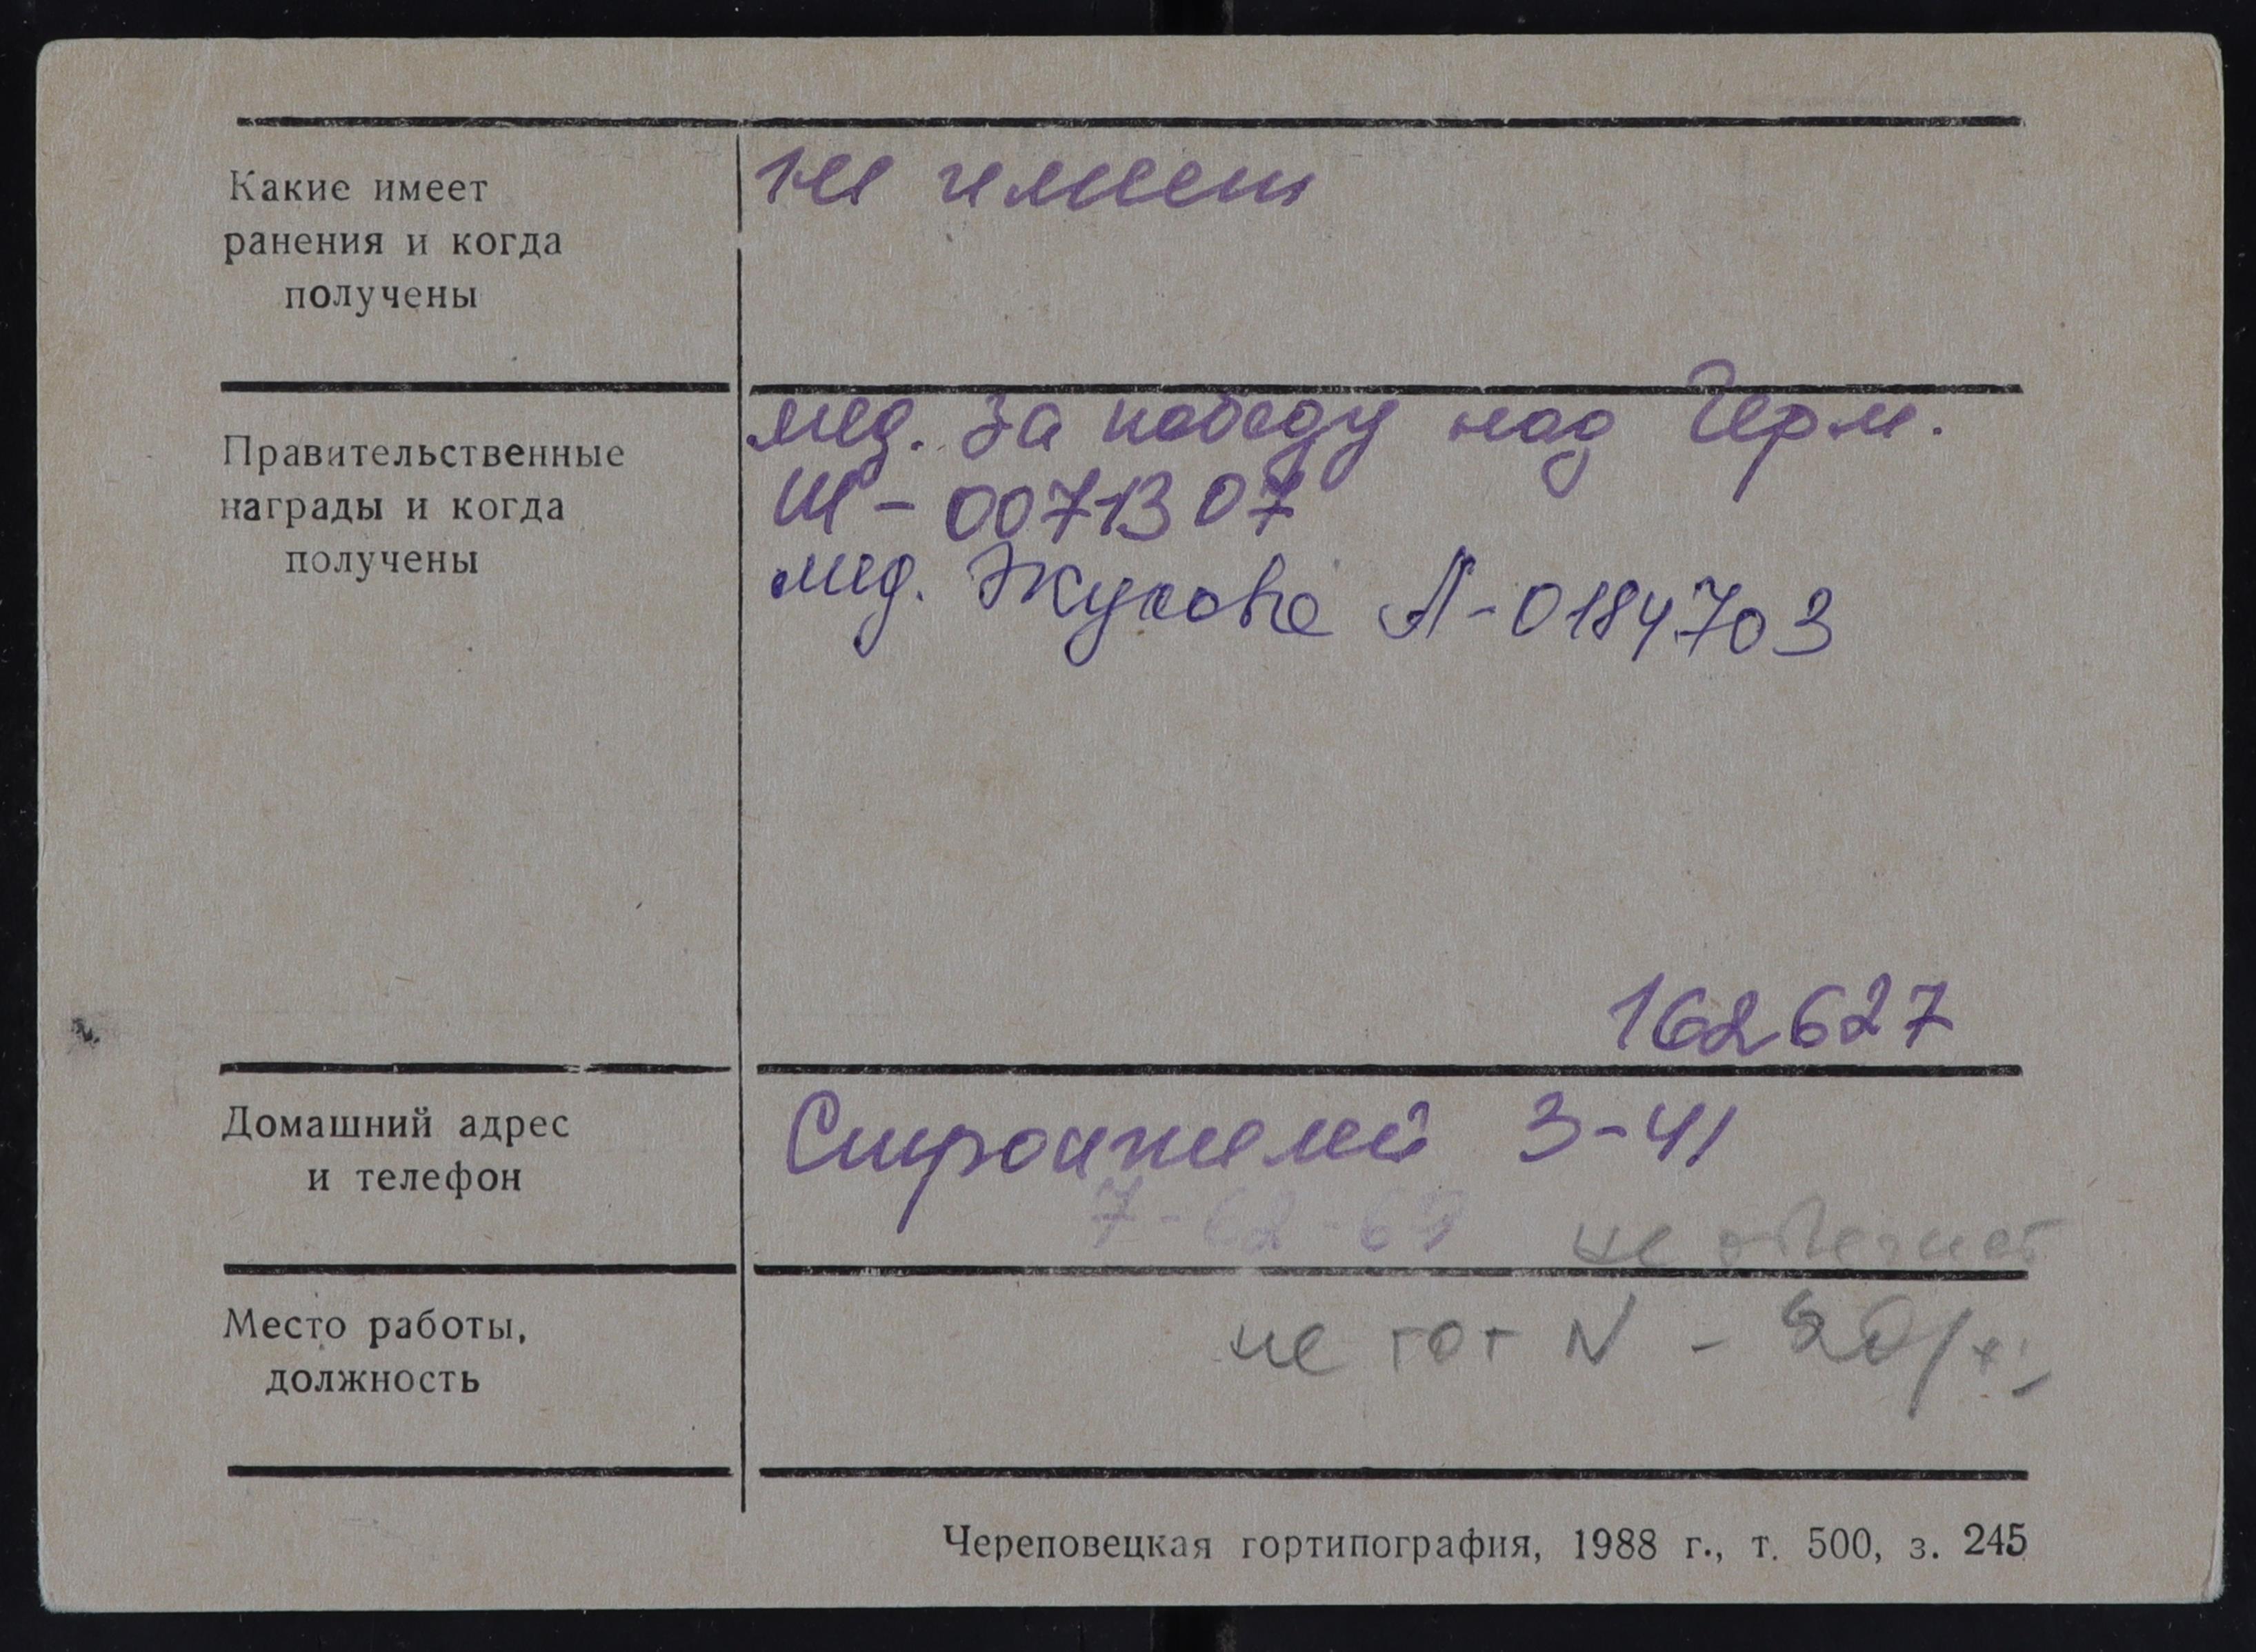 Какие имеет
ранения и когда
получены
не имеет
Правительственные
награды и когда
получены
мед. За победу над Герм.
Ш - 0071307
мед. Жукова А-0184703
162627
Домашний адрес
и телефон
Строителей 3-41
7-62-69 не отвечает
Место работы,
должность
не тот N -
Череповецкая гортипография, 1988 г., т. 500, з. 245